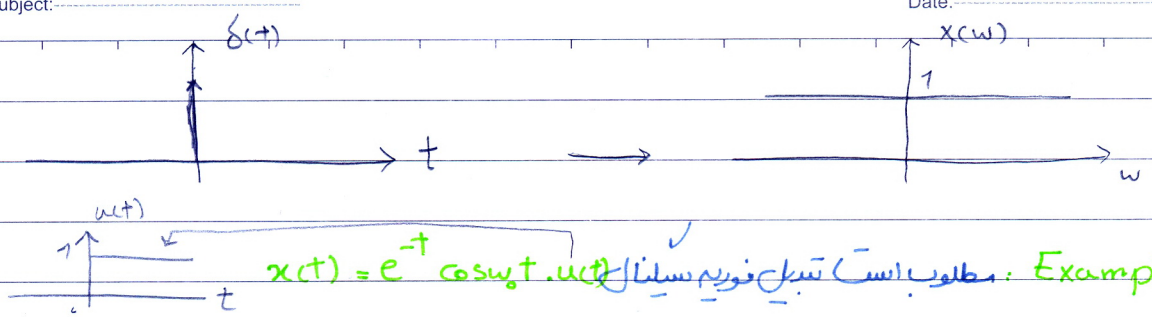 Subject: Date:
δ(t) X(ω)
1
t ω
u(t)
1
Examp : مطلوب است تبدیل فوریه سیگنال x(t) = e^-t cosω₀t . u(t)
t